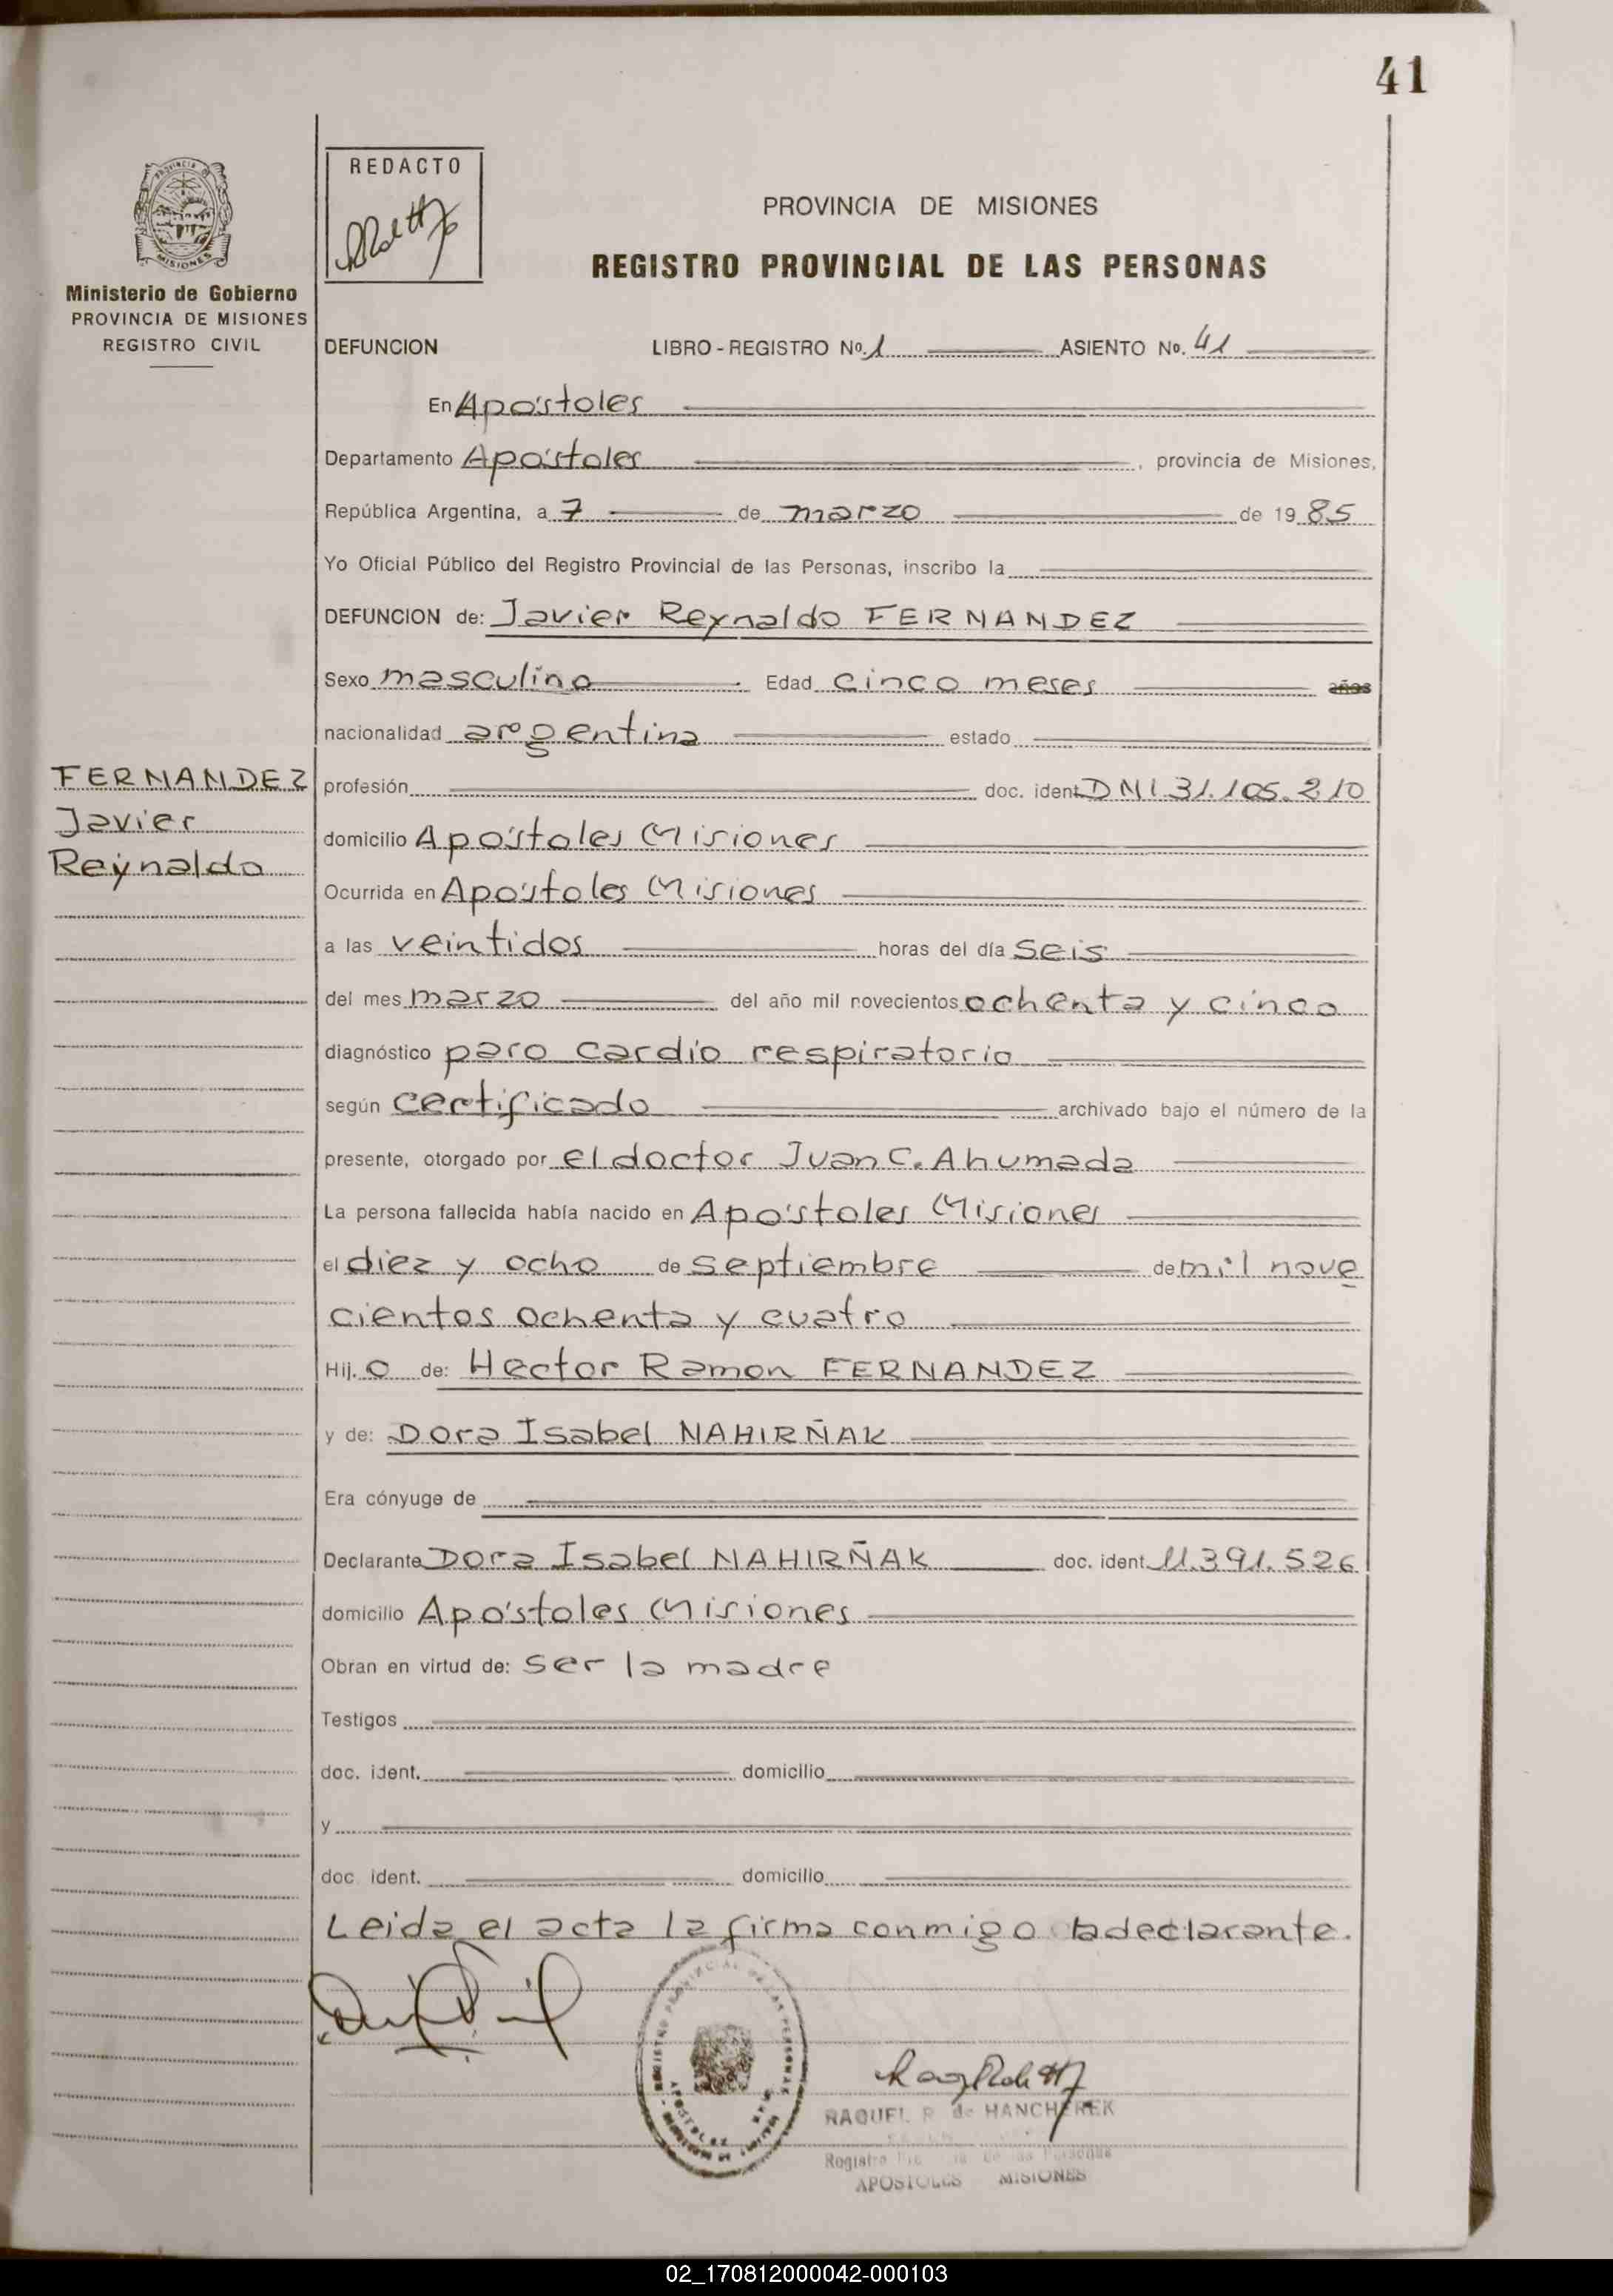 41
REDACTO
PROVINCIA DE MISIONES
REGISTRO PROVINCIAL DE LAS PERSONAS
Ministerio de Gobierno
PROVINCIA DE MISIONES
REGISTRO CIVIL
DEFUNCION LIBRO - REGISTRO No. 1 ASIENTO No. 41
En Apóstoles
Departamento Apóstoles, provincia de Misiones,
República Argentina, a 7 de marzo de 1985
Yo Oficial Público del Registro Provincial de las Personas, inscribo la
DEFUNCION de: Javier Reynaldo FERNANDEZ
Sexo masculino Edad cinco meses años
nacionalidad argentina estado
FERNANDEZ
Javier
Reynaldo
profesión doc. ident. DNI 31.105.210
domicilio Apóstoles Misiones
Ocurrida en Apóstoles Misiones
a las veintidos horas del día seis
del mes marzo del año mil novecientos ochenta y cinco
diagnóstico paro cardio respiratorio
según certificado archivado bajo el número de la
presente, otorgado por el doctor Juan C. Ahumada
La persona fallecida había nacido en Apóstoles Misiones
el diez y ocho de septiembre de mil nove
cientos ochenta y cuatro
Hij.o de: Hector Ramon FERNANDEZ
y de: Dora Isabel NAHIRÑAK
Era cónyuge de
Declarante Dora Isabel NAHIRÑAK doc. ident. 11.391.526
domicilio Apóstoles Misiones
Obran en virtud de: ser la madre
Testigos
doc. ident. domicilio
y
doc. ident. domicilio
Leida el acta la firma conmigo la declarante.
RAQUEL R. de HANCHEREK
Registro
APOSTOLES MISIONES
02_170812000042-000103